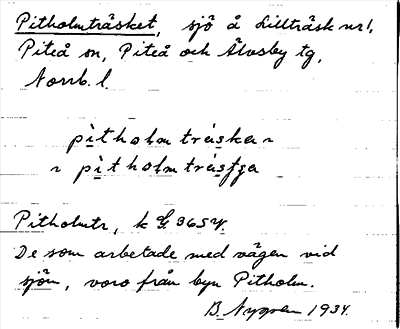 Pitholmträsket, sjö å Lillträsk nr 1,
Piteå sn, Piteå och Älvsby tg,
Norrb. l.
pìtholmtráska ~
~ pìtholmtrásʃʒa
Pitholmtr, k G. 365 V.
De som arbetade med vägen vid
sjön, voro från byn Pitholm.
B. Nygren 1934.